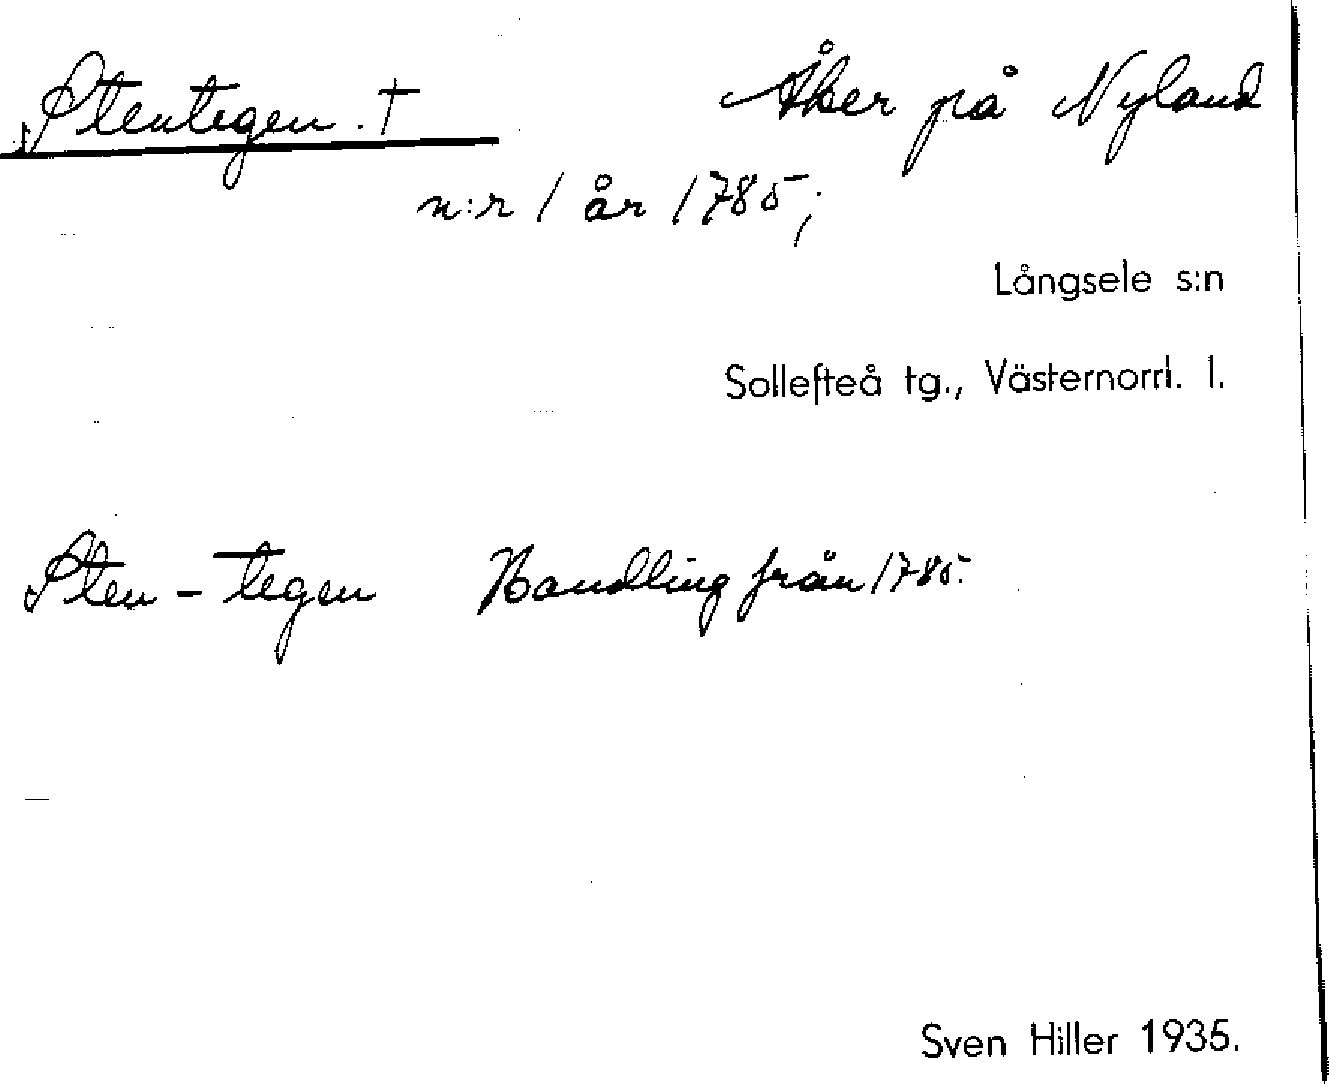 Stentegen. † Åker på Nyland
n:r 1 år 1785;
Långsele s:n
Sollefteå tg., Västernorrl. l.
Sten - tegen Handling från 1785.
Sven Hiller 1935.